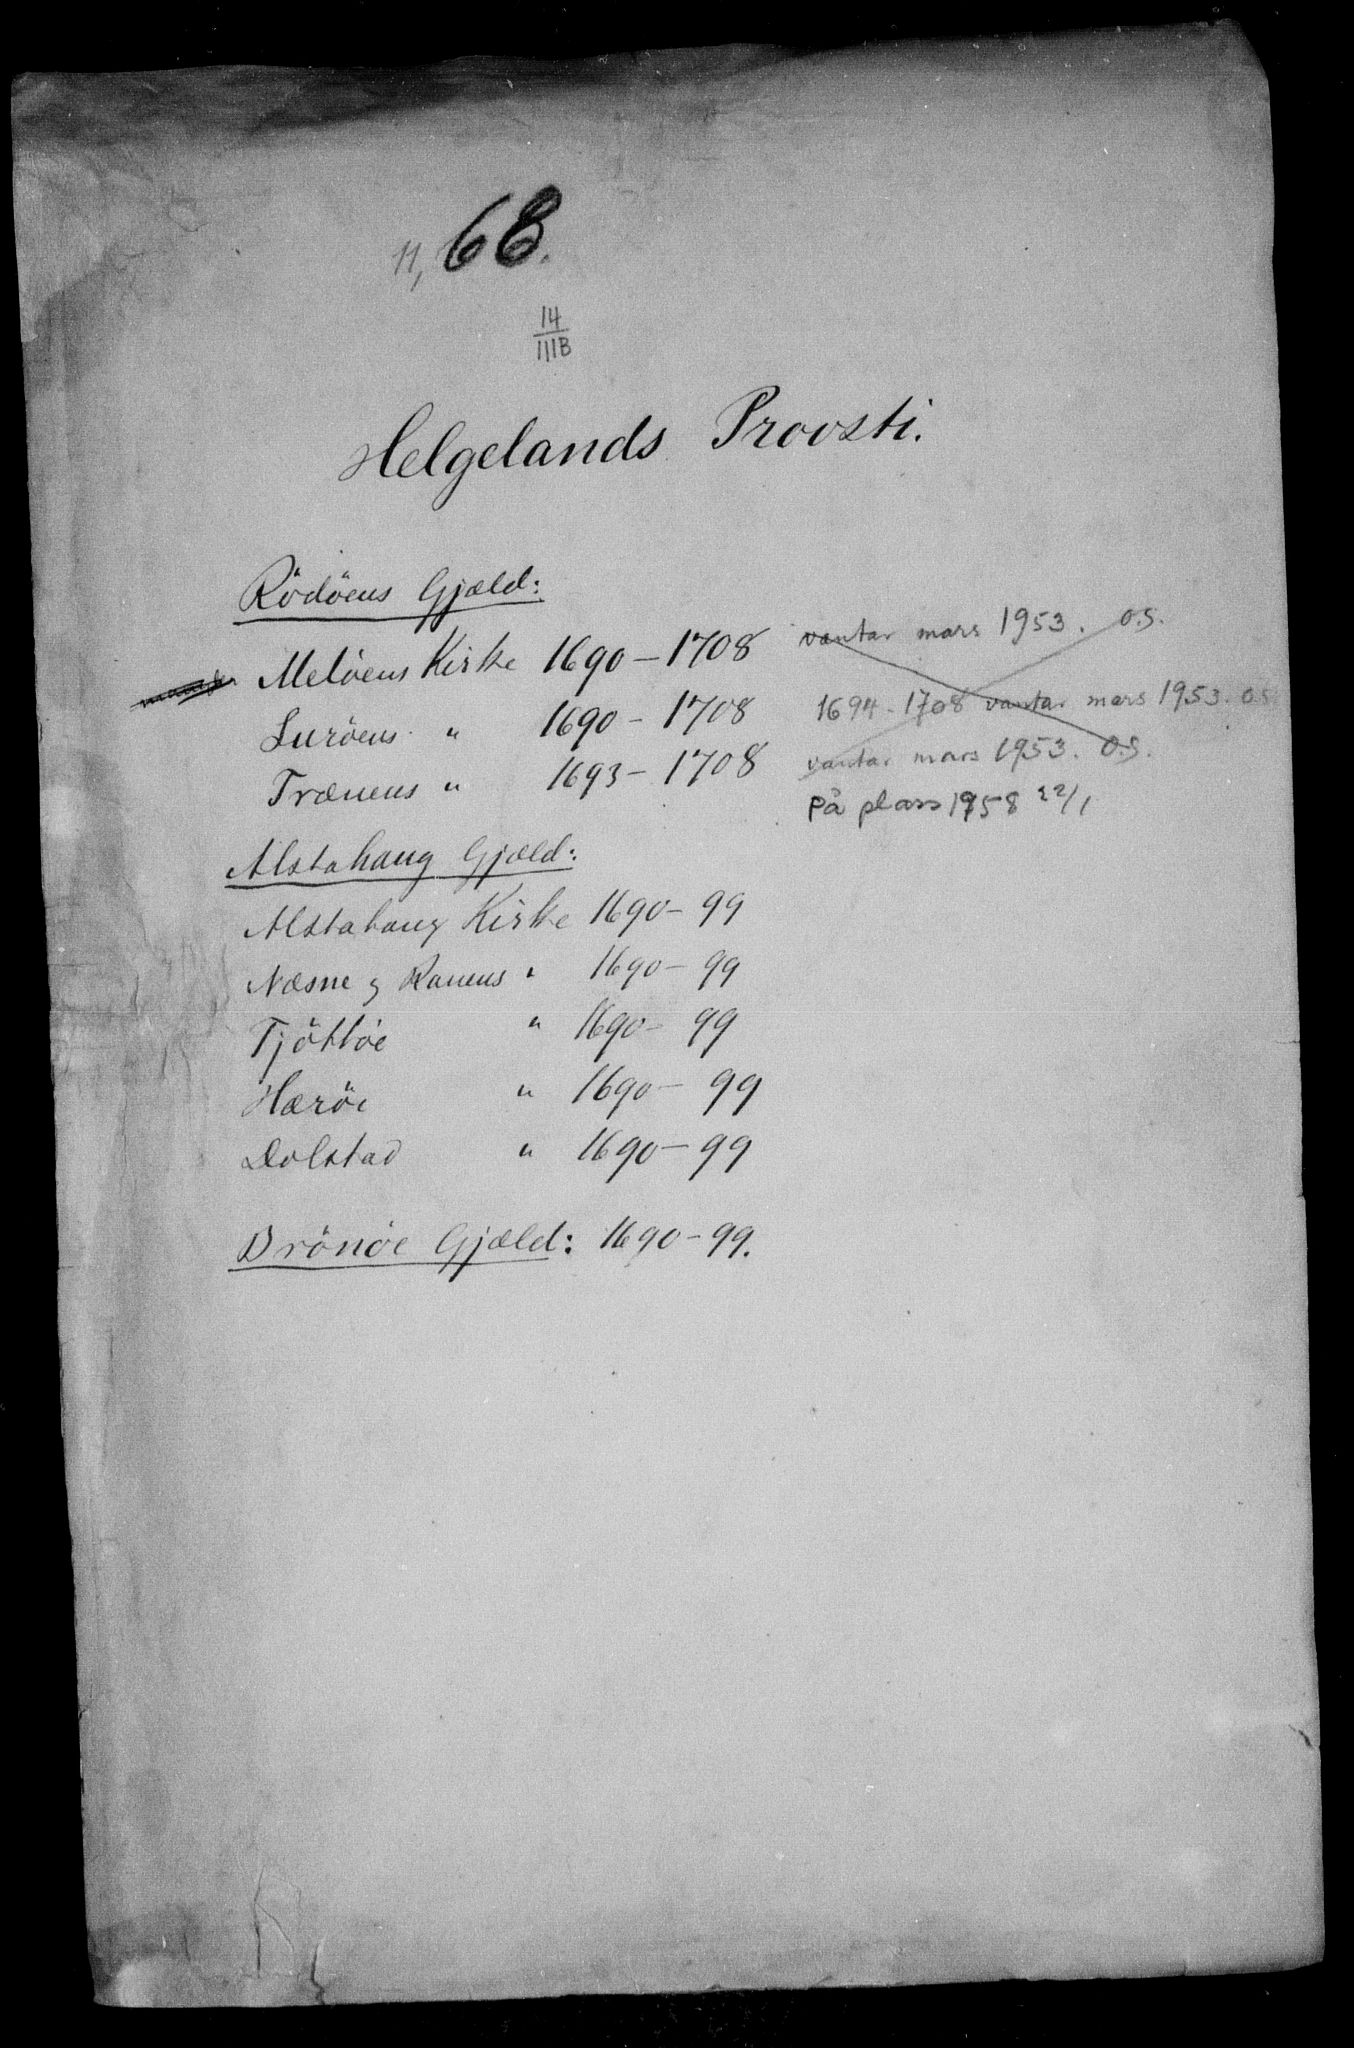 11, 68.
14
IIIB
Helgelands Provsti.
Rödöens Gjæld:
Melöens Kirke 1690-1708 vantar mars 1953. O.S.
Luröens " 1690-1708 1694-1708 vantar mars 1953. O.S.
Trænens " 1693-1708 vantar mars 1953. O.S.
På plass 1958 22/1
Alstahaug Gjæld:
Alstahaug Kirke 1690-99
Næsne og Ranens " 1690-99
Tjöttöe " 1690-99
Hæröe " 1690-99
Dolstad " 1690-99
Brönöe Gjæld: 1690-99.